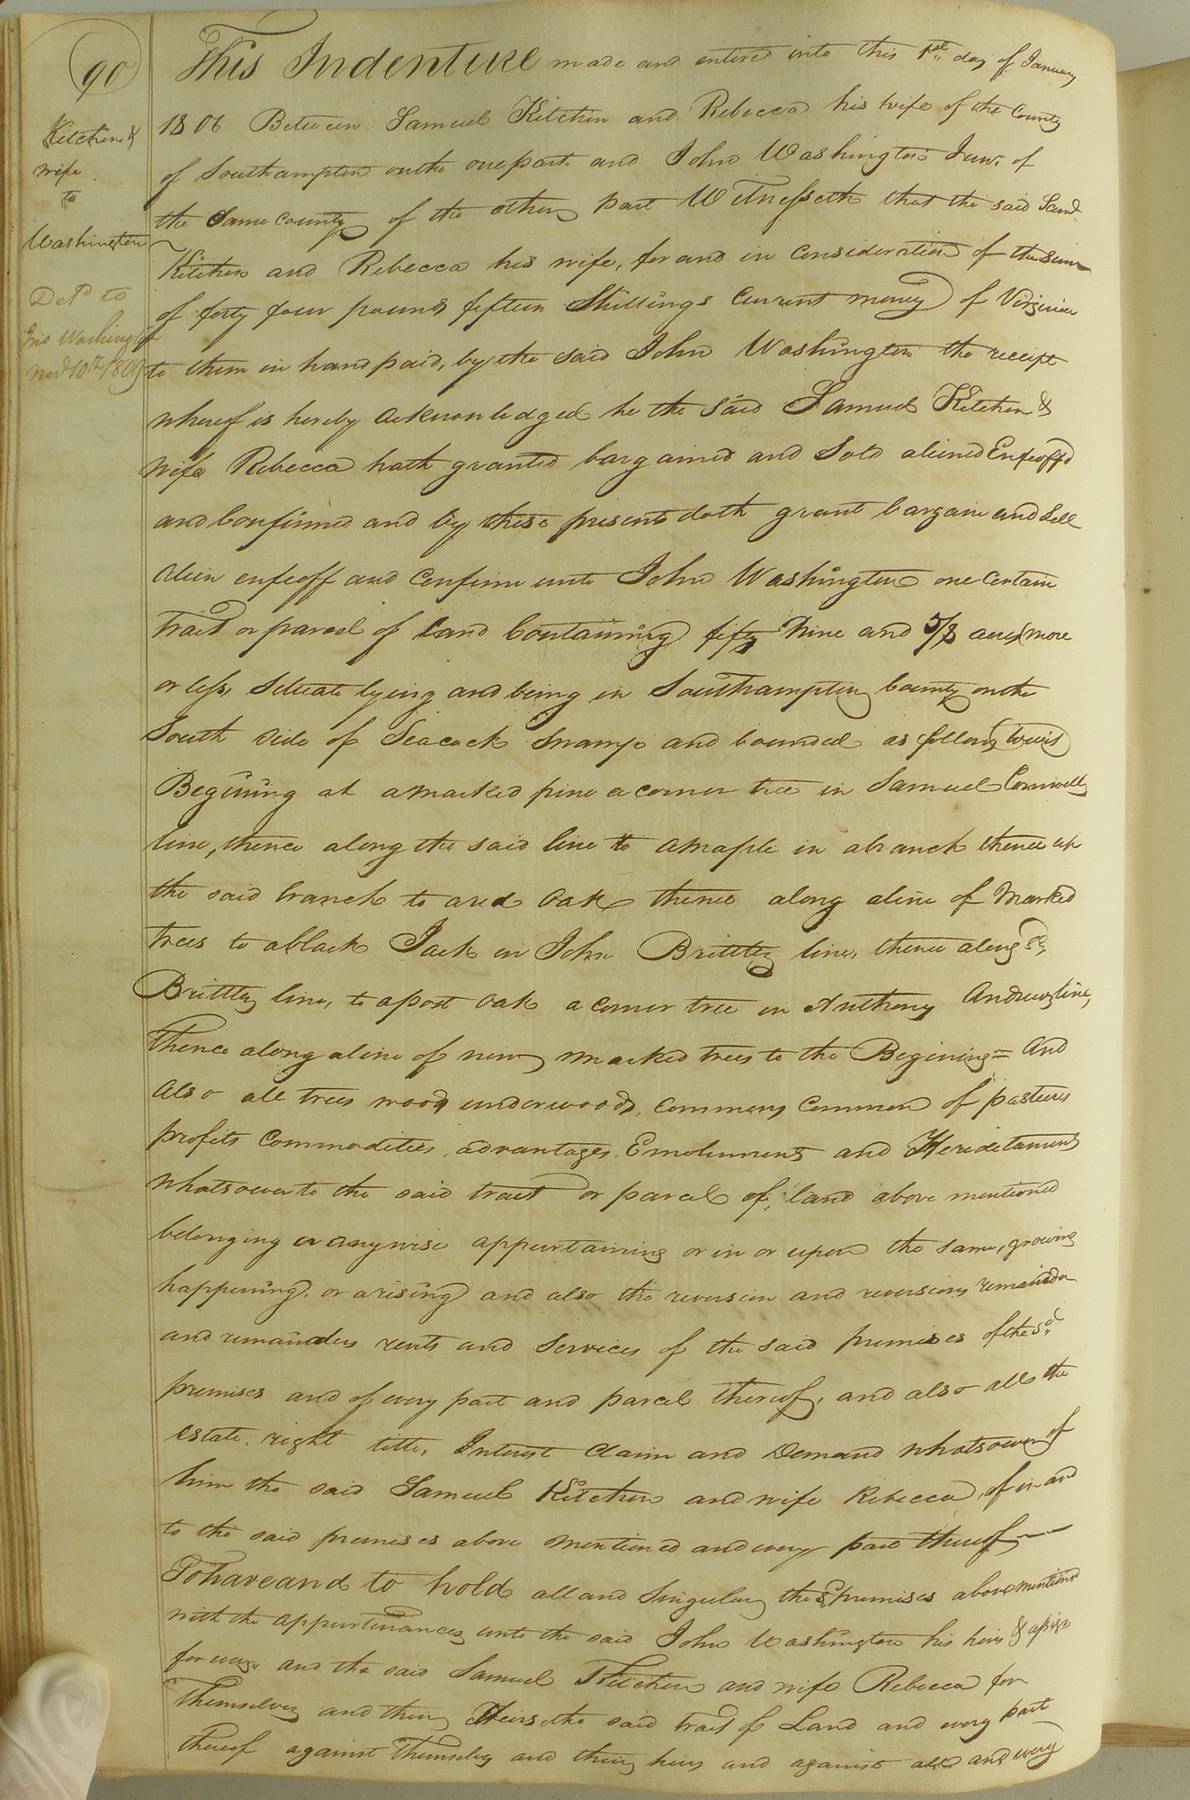 90
Kitchen &
wife
to
Washington
Deld to
Jno Washington
Novr 10th 1809
This Indenture made and entered into this 1st day of January
1806 Between Samuel Kitchen and Rebecca his wife of the County
of Southampton on the one part and John Washington Junr. of
the Same County of the other part Witnesseth that the said Saml.
Kitchen and Rebecca his wife, for and in Consideration of the Sum
of forty four pounds fifteen Shillings Current money of Virginia
to them in hand paid, by the said John Washington the receipt
whereof is hereby acknowledged he the said Samuel Kitchen &
wife Rebecca hath granted bargained and Sold aliened Enfeoffd
and Confirmed and by these presents doth grant bargain and Sell
alien enfeoff and Confirm unto John Washington one Certain
Tract or parcel of land Containing fifty Nine and 5/8 acres more
or less, Situate lying and being in Southampton County on the
South side of Seacock Swamp and bounded as follows towit
Begining at a marked pine a corner tree in Samuel Cornwells
line, thence along the said line to a maple in a branch thence up
the said branch to a red Oak thence along a line of Marked
trees to a black Jack in John Brittles line, thence along sd.
Brittles line, to a post Oak a corner tree in Anthony Andrews line,
Thence along a line of new marked trees to the Begining = And
Also all trees woods underwoods, Commons Common of pastures
profits Commodities, advantages, Emoluments and Hereditaments
whatsoever to the said tract or parcel of land above mentioned
belonging or anywise appurtaining or in or upon the same, growing
happening, or arising and also the reversion and reversions remainder
and remainders rents and Services of the said premises of the sd.
premises and of every part and parcel thereof, and also all the
estate, right title, Interest Claim and Demand whatsoever of
him the said Samuel Kitchen and wife Rebecca, of in and
to the said premises above mentioned and every part thereof
To have and to hold all and Singular the sd. premises above mentiond
with the appurtenances unto the said John Washington his heirs & assigns
for ever. and the said Samuel Kitchen and wife Rebecca for
Themselves and their Heirs, the said tract of Land and every part
thereof against Themselves and their heirs and against all and every